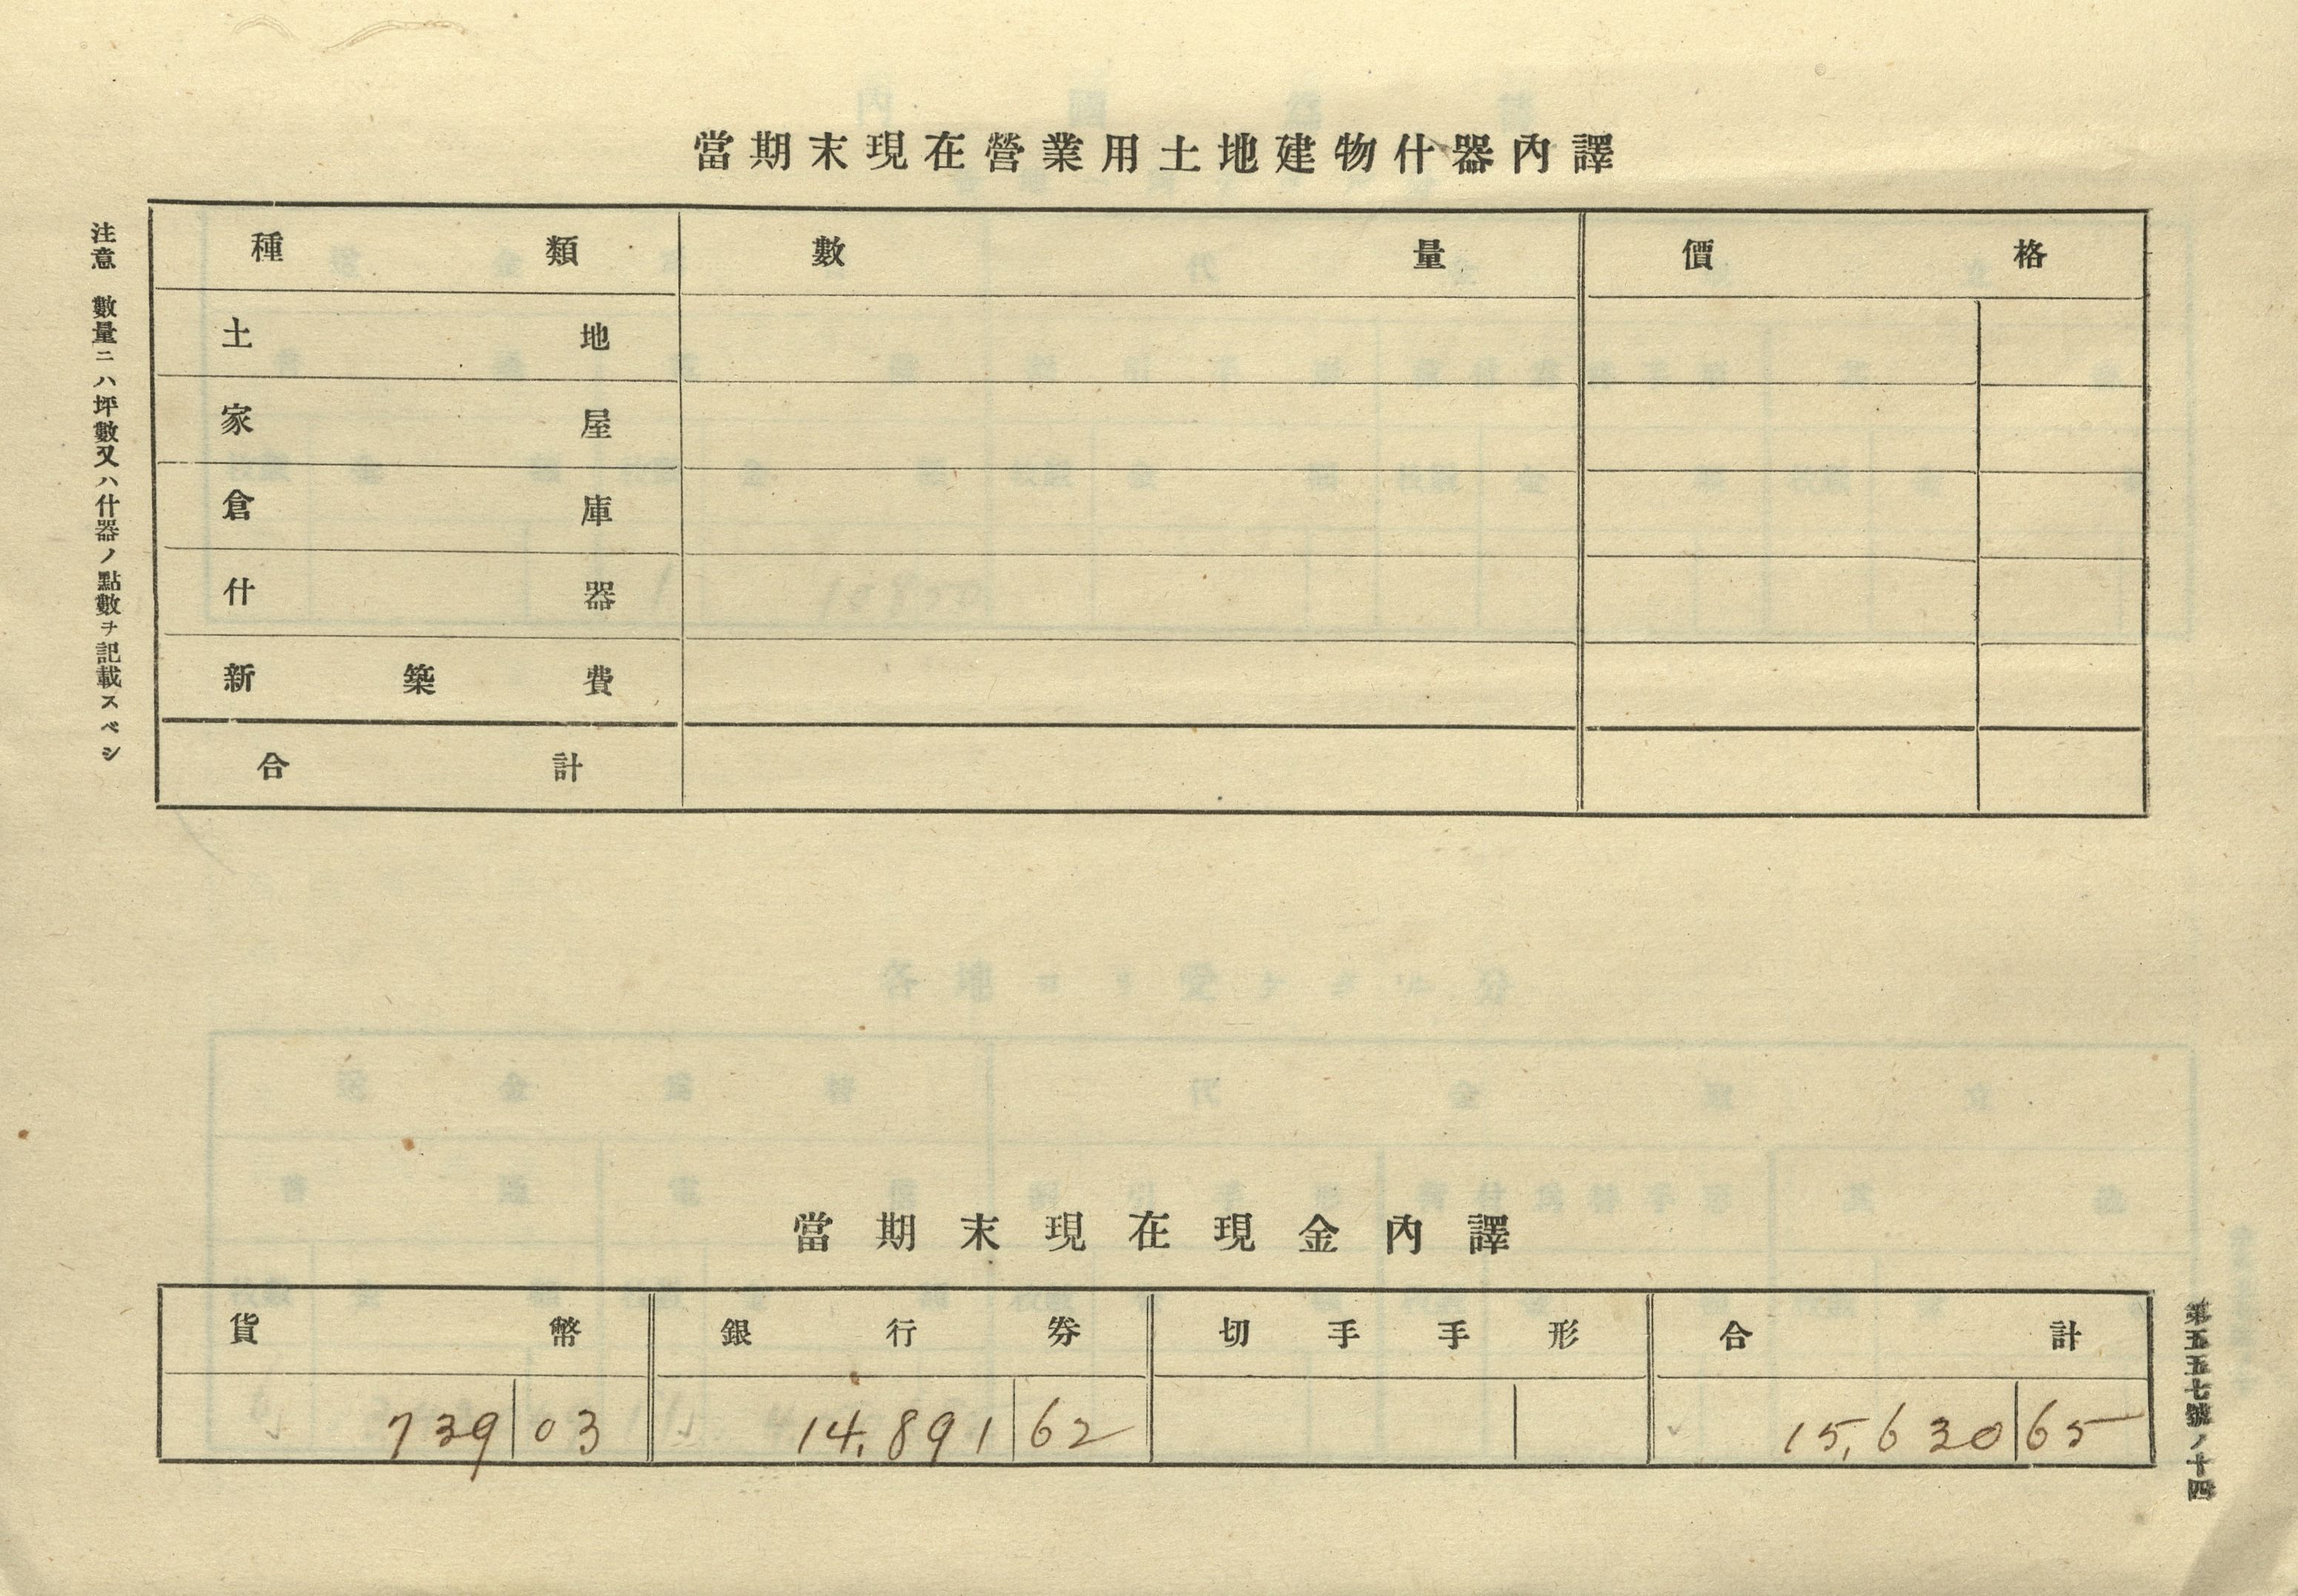 當期末現在營業用土地建物什器內譯
種類 數量 價格
土地
家屋
倉庫
什器
新築費
合計
注意 數量ニハ坪數又ハ什器ノ點數ヲ記載スベシ
當期末現在現金內譯
貨幣 銀行券 切手手形 合計
739 03 14,891 62 15,630 65
第五五七號ノ十四